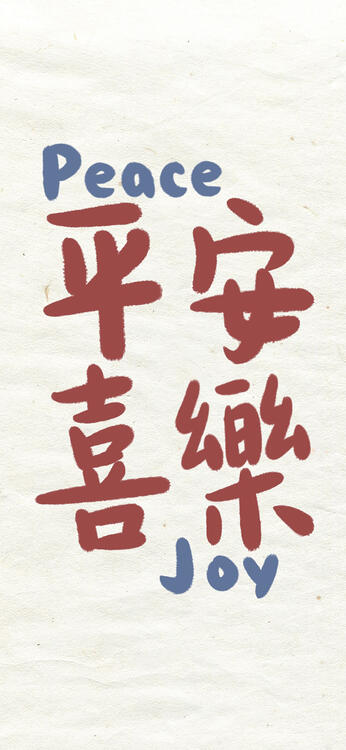 Peace
平安
喜樂
Joy